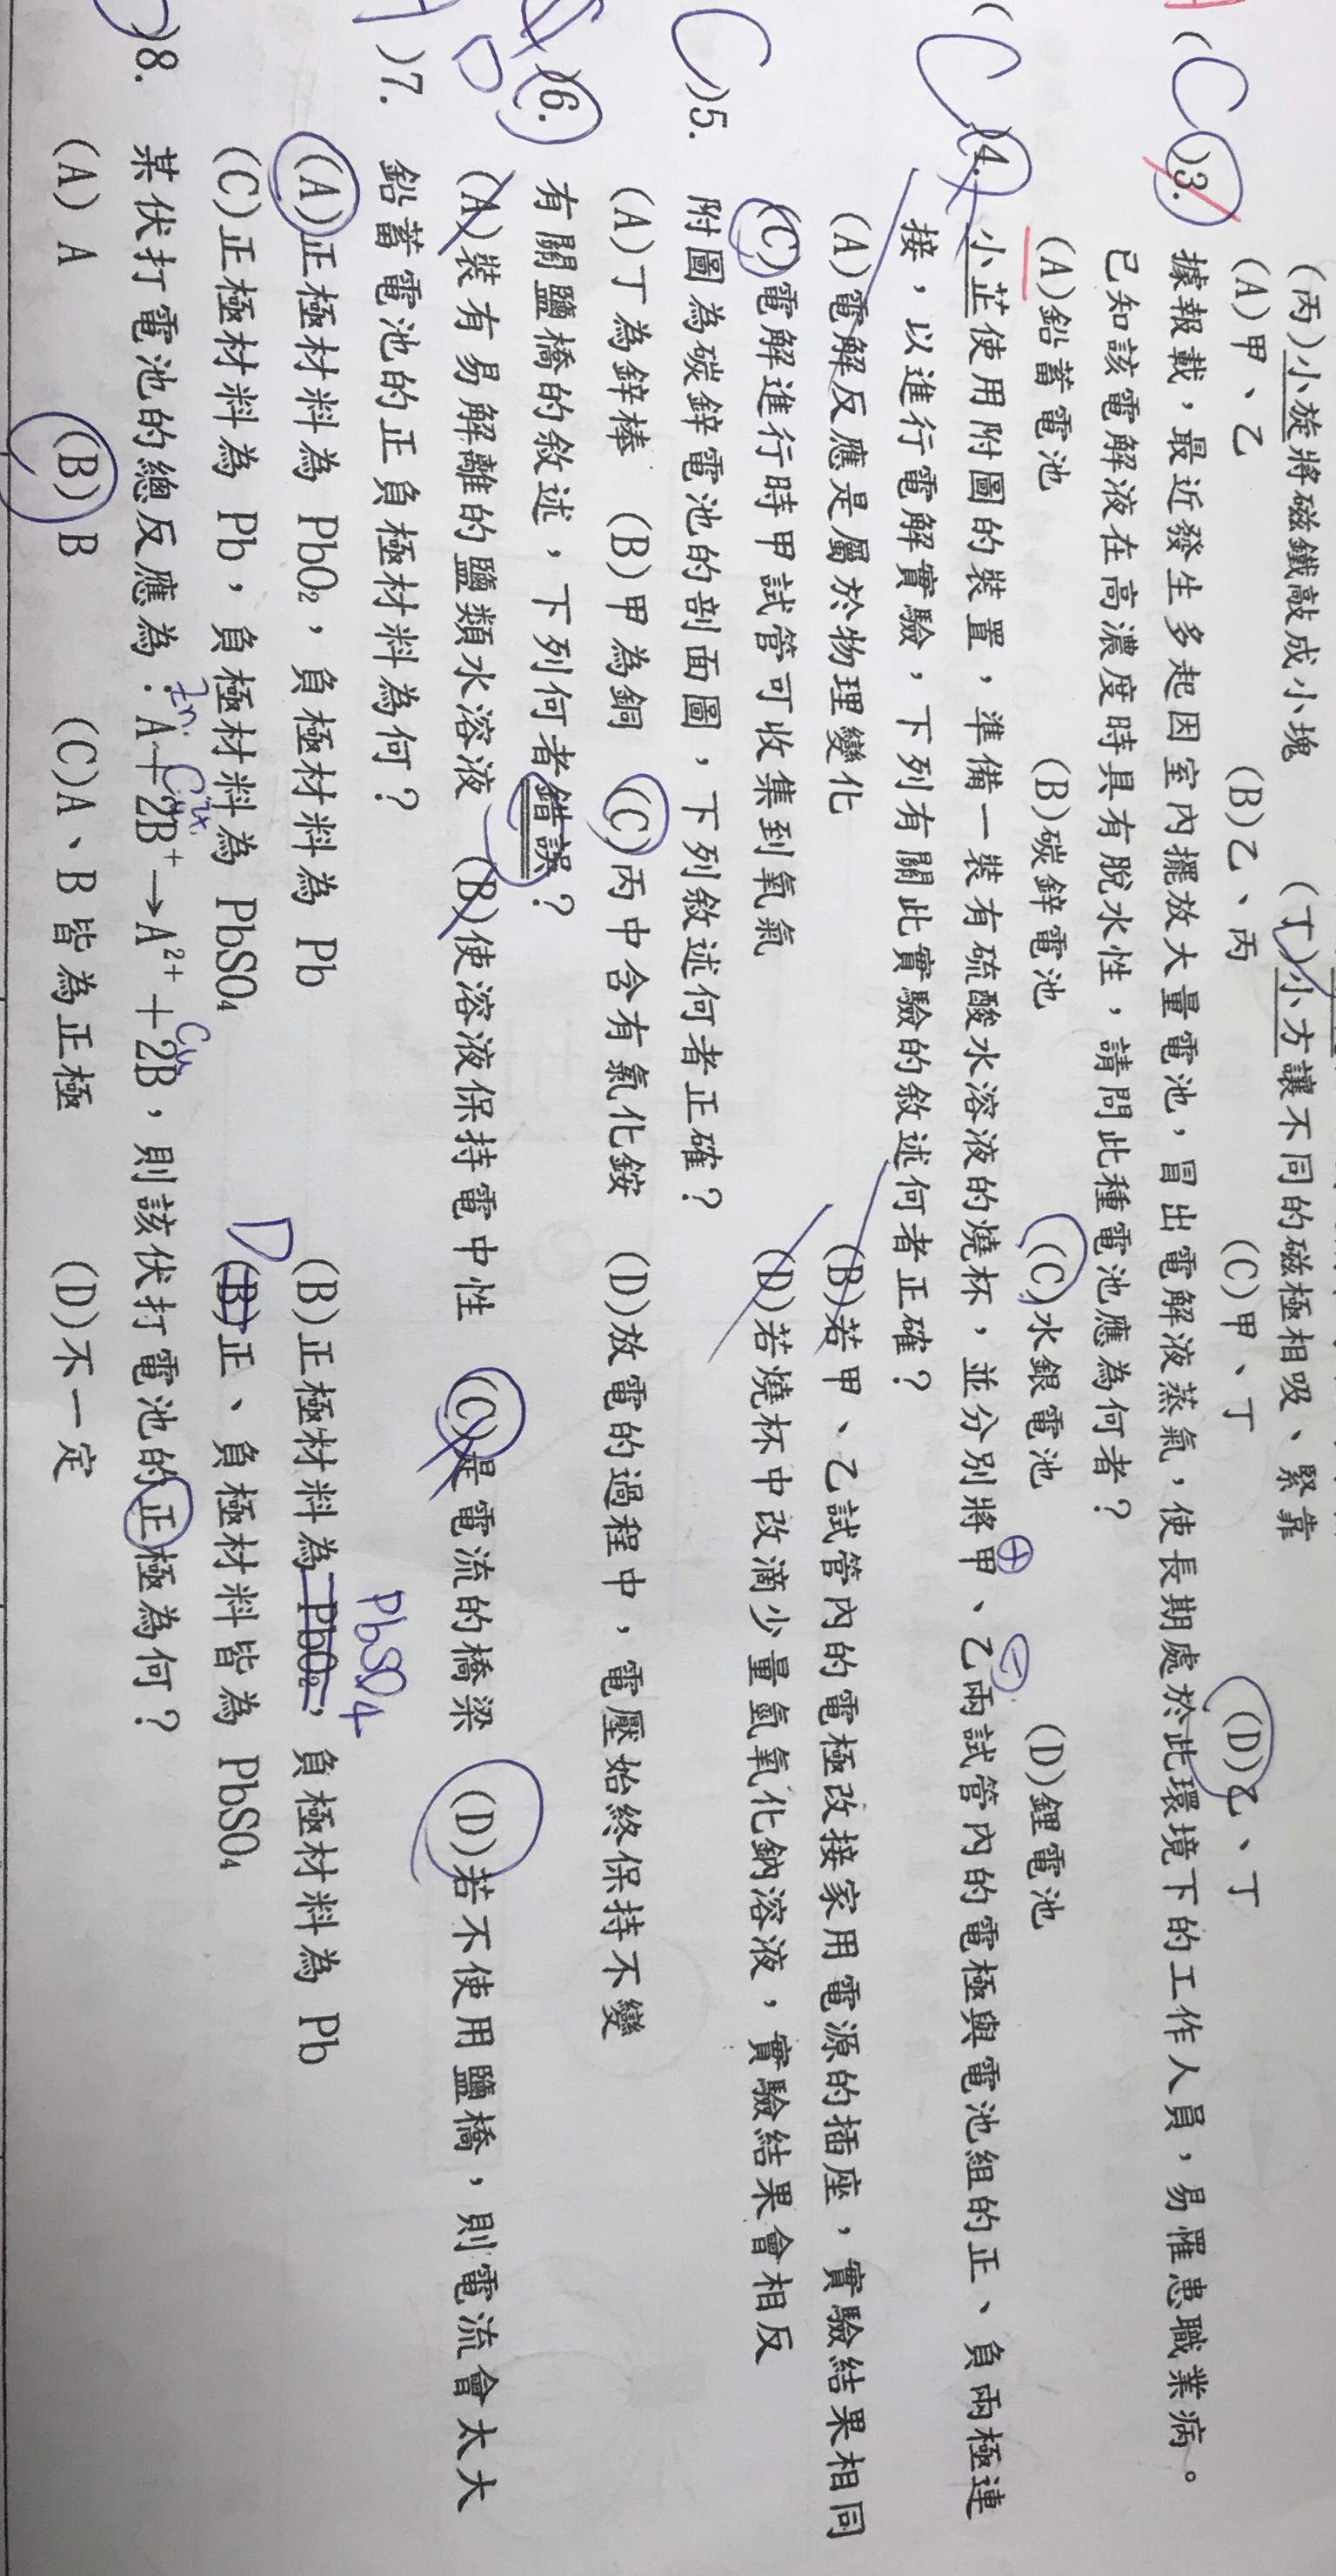 (丙)小旋將磁鐵敲成小塊 (丁)小方讓不同的磁極相吸、緊靠
(A)甲、乙 (B)乙、丙 (C)甲、丁 (D)乙、丁
( C )3. 據報載，最近發生多起因室內擺放大量電池，冒出電解液蒸氣，使長期處於此環境下的工作人員，易罹患職業病。
已知該電解液在高濃度時具有脫水性，請問此種電池應為何者？
(A)鉛蓄電池 (B)碳鋅電池 (C)水銀電池 (D)鋰電池
( C )4. 小芷使用附圖的裝置，準備一裝有硫酸水溶液的燒杯，並分別將甲、乙兩試管內的電極與電池組的正、負兩極連
⊕ ⊖
接，以進行電解實驗，下列有關此實驗的敘述何者正確？
(A)電解反應是屬於物理變化 (B)若甲、乙試管內的電極改接家用電源的插座，實驗結果相同
(C)電解進行時甲試管可收集到氧氣 (D)若燒杯中改滴少量氫氧化鈉溶液，實驗結果會相反
C )5. 附圖為碳鋅電池的剖面圖，下列敘述何者正確？
(A)丁為鋅棒 (B)甲為銅 (C)丙中含有氯化銨 (D)放電的過程中，電壓始終保持不變
)6. 有關鹽橋的敘述，下列何者錯誤？
D
(A)裝有易解離的鹽類水溶液 (B)使溶液保持電中性 (C)是電流的橋梁 (D)若不使用鹽橋，則電流會太大
)7. 鉛蓄電池的正負極材料為何？
PbSO4
(A)正極材料為 PbO₂，負極材料為 Pb (B)正極材料為 PbO₂，負極材料為 Pb
(C)正極材料為 Pb，負極材料為 PbSO₄ D (B)正、負極材料皆為 PbSO₄
Zn Cu
)8. 某伏打電池的總反應為：A＋2B⁺→A²⁺＋2B，則該伏打電池的正極為何？
(A) A (B) B (C)A、B 皆為正極 (D)不一定